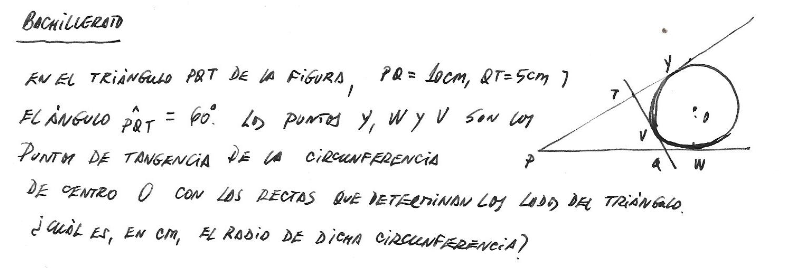 BACHILLERATO
EN EL TRIÁNGULO PQT DE LA FIGURA, PQ = 10cm, QT = 5cm Y
EL ÁNGULO PQ̂T = 60°. LOS PUNTOS Y, W Y V SON LOS
PUNTOS DE TANGENCIA DE LA CIRCUNFERENCIA
DE CENTRO O CON LAS RECTAS QUE DETERMINAN LOS LADOS DEL TRIÁNGULO.
¿CUÁL ES, EN CM, EL RADIO DE DICHA CIRCUNFERENCIA?
Y
T
O
V
P
Q
W